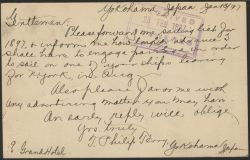 Yokohama Japan Jan 13/97
Gentlemen
Please forward me sailing list for
1897, & inform me how long in advance I
shall have to engage passage in order
to sail on one of your ships leaving
for N. York, in Aug.
Also please favor me with
any advertising matter you may have.
An early reply will oblige
Yours truly
T. Philip Terry
Grand Hotel
Yokohama Japan